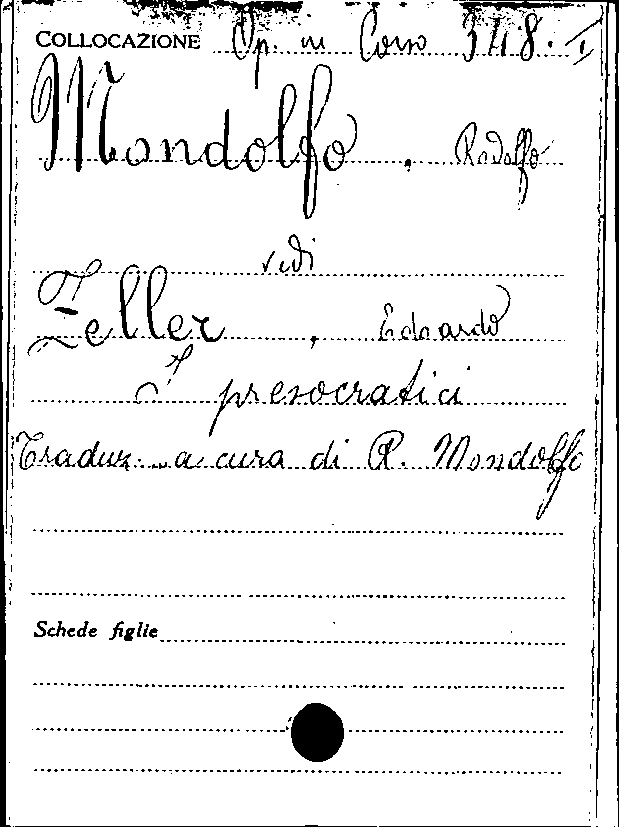 COLLOCAZIONE Op. in Corso 348. I
Mondolfo, Rodolfo
vedi
Zeller, Edoardo
I presocratici
Traduz. a cura di R. Mondolfo
Schede figlie